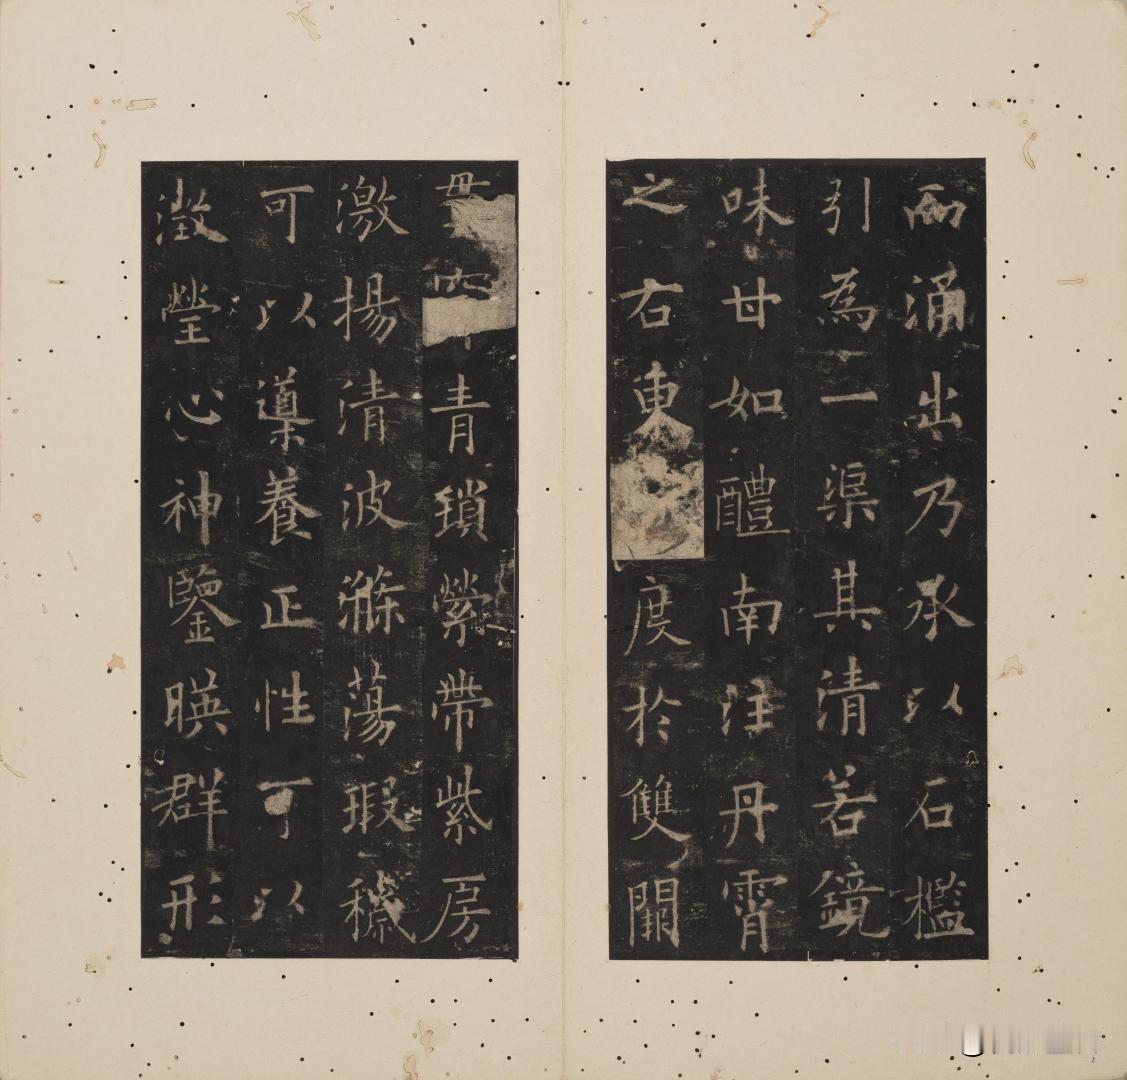 而涌出乃承以石檻
引為一渠其清若鏡
味甘如醴南注丹霄
之右東度於雙闕
青瑣縈帶紫房
激揚清波滌蕩瑕穢
可以導養正性可以
澂瑩心神鑒暎群形